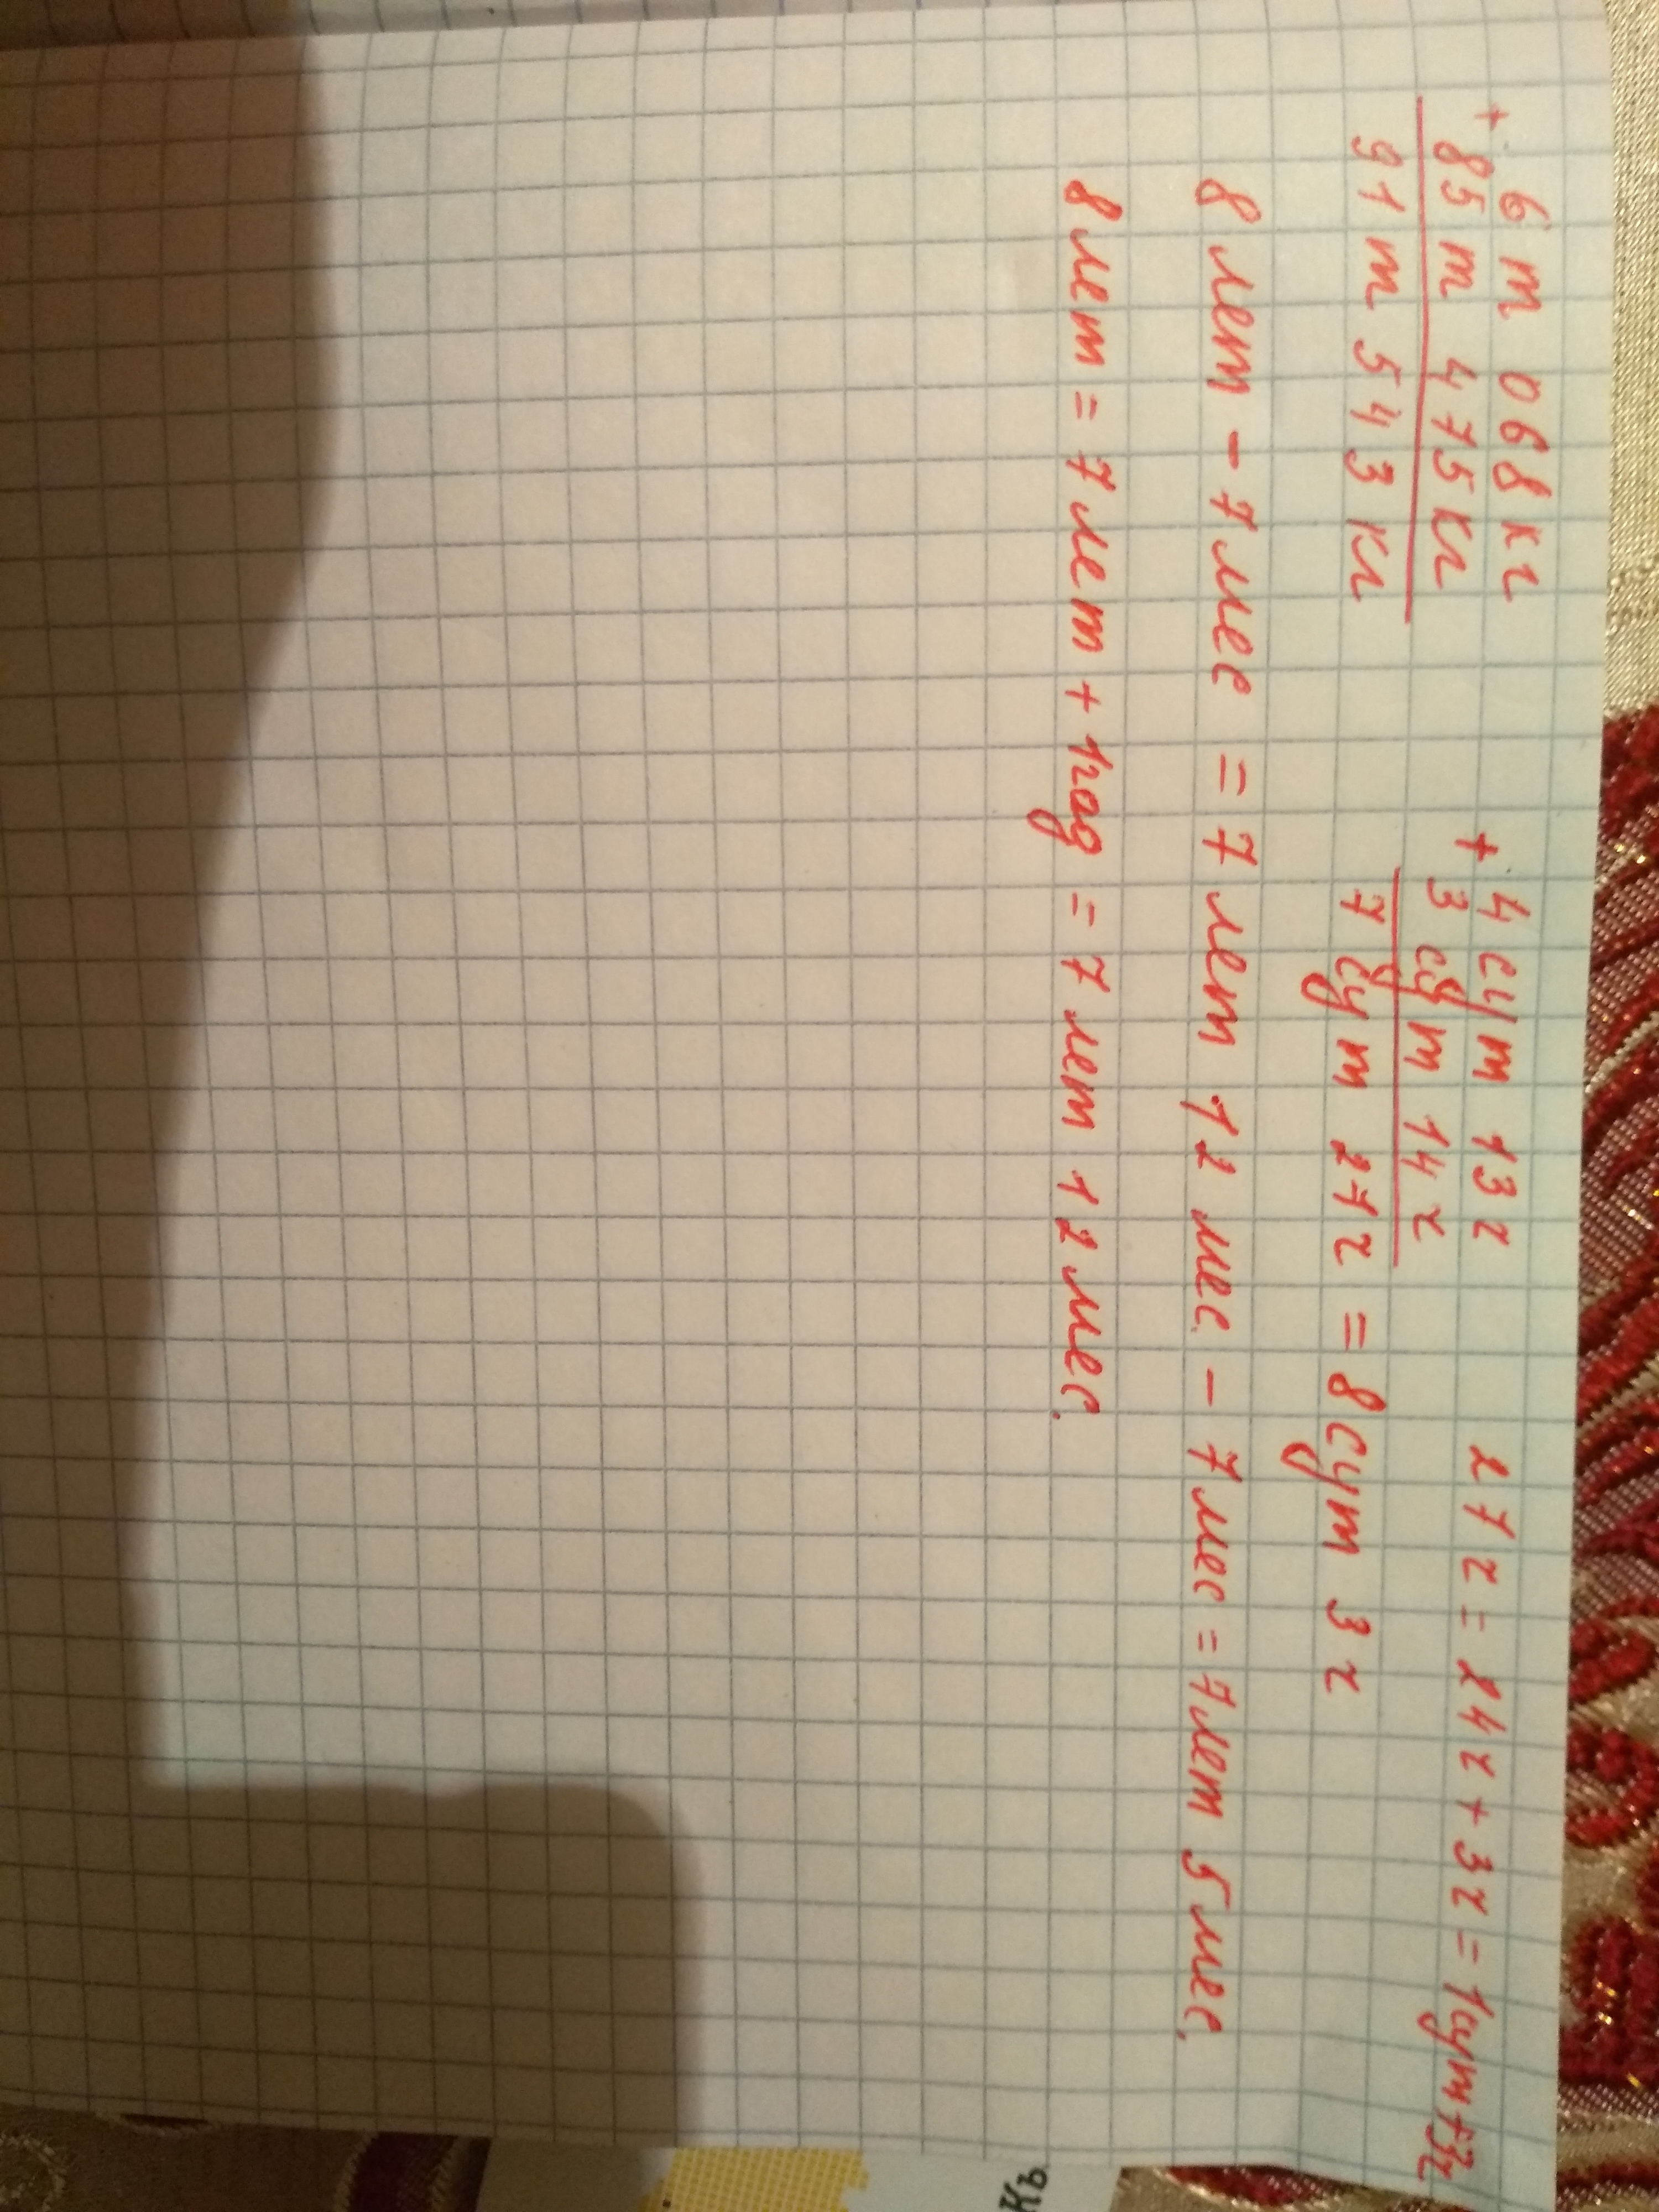 6 т 068 кг
+ 85 т 475 кг
91 т 543 кг
+ 4 сут 13 ч
3 сут 14 ч
7 сут 27 ч = 8 сут 3 ч
27 ч = 24 ч + 3 ч = 1 сут + 3 ч
8 лет - 7 мес = 7 лет 12 мес. - 7 мес = 7 лет 5 мес.
8 лет = 7 лет + 1 год = 7 лет 12 мес.
КЪ